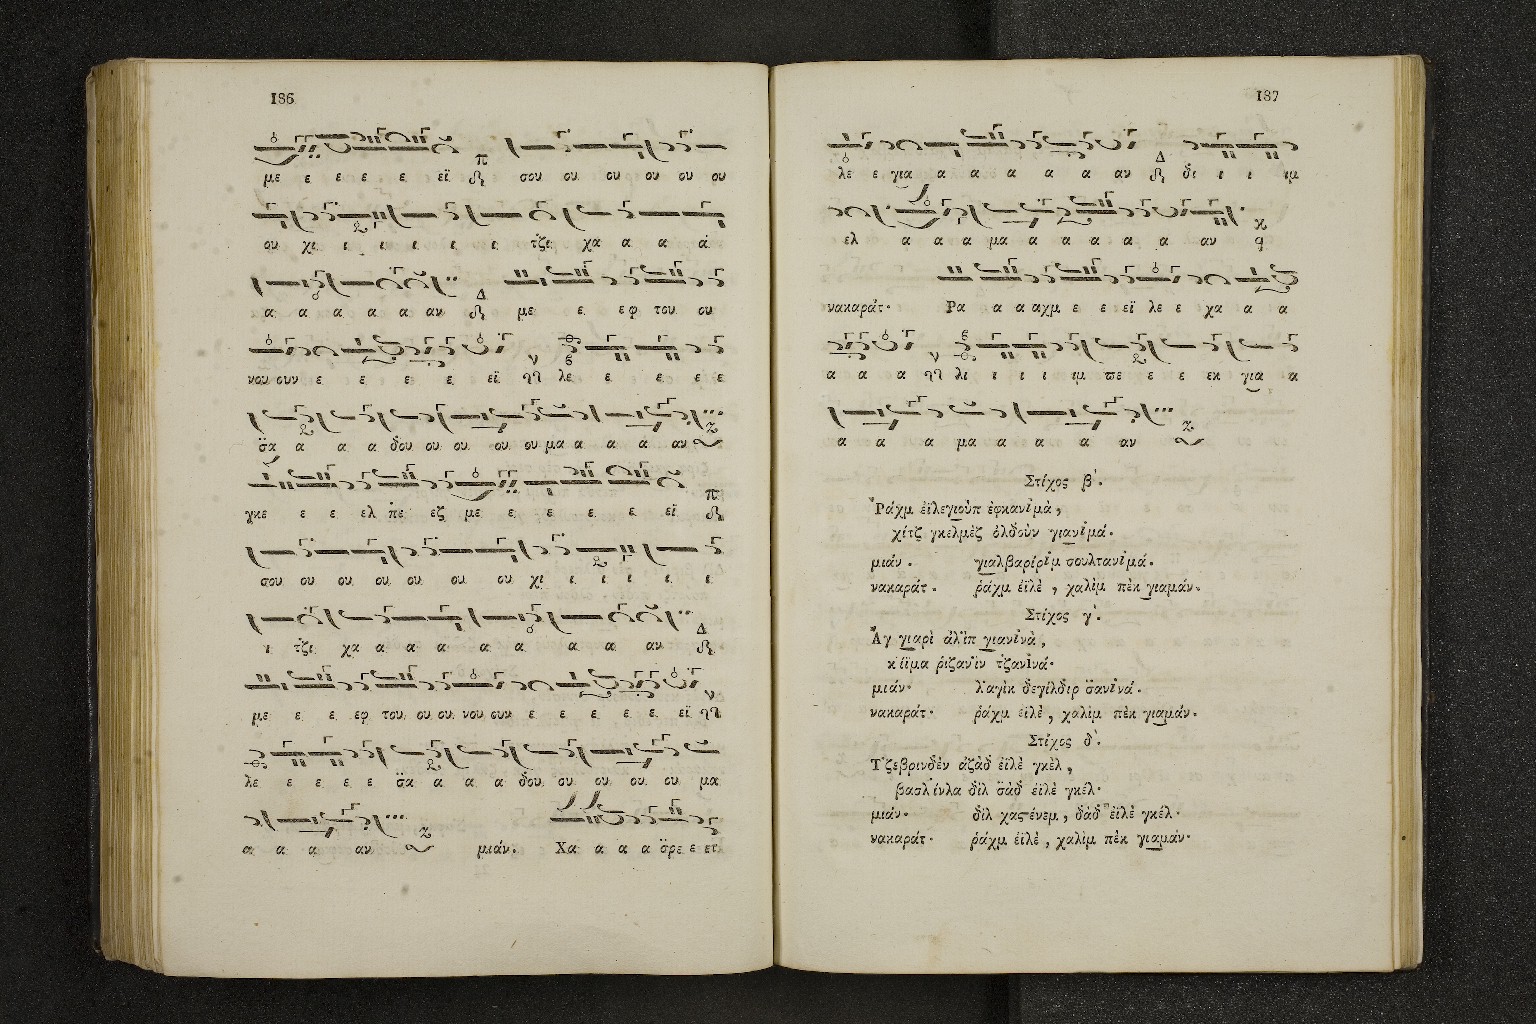 186
με ε ε ε ε εϊ σου ου ου ου ου ου
ου χι ι ι ι ι ι τζι χα α α α
α α α α α αν με ε εφ του ου
νου ουν ε ε ε ε εϊ λε ε ε ε ε
σ̈α α α α δου ου ου ου ου μα α α α αν
γκε ε ε ελ πε εζ με ε ε ε ε εϊ
σου ου ου ου ου ου ου χι ι ι ι ι
ι τζι χα α α α α α α α αν
με ε ε εφ του ου ου νου ουν ε ε ε ε ε εϊ
λε ε ε ε ε σ̈α α α α δου ου ου ου ου μα
α α α αν μιάν. Χα α α α σ̈ρε ε ετ
187
λε ε για α α α α α αν δι ι ι ιμ
ελ α α α μα α α α α α αν
νακαράτ· Ρα α α αχμ ε ε εϊ λε ε χα α α
α α α λι ι ι ι ιμ πε ε ε εκ για α
α α α μα α α α αν
Στίχος β'.
Ῥάχμ ἐϊλεγιοὺπ ἐφκανιμὰ,
χίτζ γκελμὲζ ὀλδοὺν γιανιμά.
μιάν. γιαλβαρίριμ σουλτανιμά.
νακαράτ. ῥάχμ ἐϊλὲ, χαλὶμ πὲκ γιαμάν.
Στίχος γ'.
Ἂγ γιαρὶ ἀλἲπ γιανινὰ,
κἲϊμα ριζανἲν τζανινά·
μιάν· λ̈αγὶκ δεγίλδιρ σ̈ανινά.
νακαράτ· ῥάχμ εἰλὲ, χαλὶμ πὲκ γιαμάν.
Στίχος δ'.
Τζεβρινδὲν ἀζὰδ ἐϊλὲ γκὲλ,
βασλἲνλα δὶλ σ̈ὰδ ἐϊλὲ γκέλ·
μιάν· δὶλ χαστένεμ, δὰδ ἐϊλὲ γκέλ.
νακαράτ· ῥάχμ ἐϊλὲ, χαλὶμ πὲκ γιαμάν·